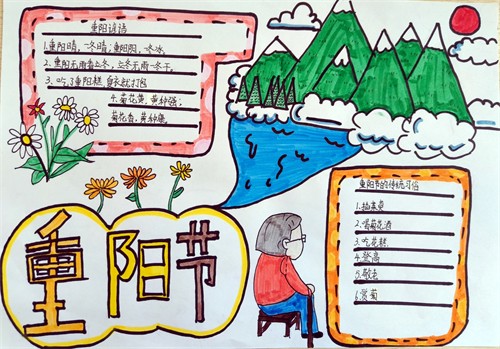 重阳谚语
1.重阳晴,一冬晴;重阳阴,一冬冰.
2.重阳无雨看立冬,立冬无雨一冬干.
3.吃了重阳糕,单衫打包
4.菊花黄,黄种强;
菊花香,黄种康.
重阳节
重阳节的传统习俗
1.插茱萸
2.喝菊花酒
3.吃花糕
4.登高
5.敬老
6.赏菊